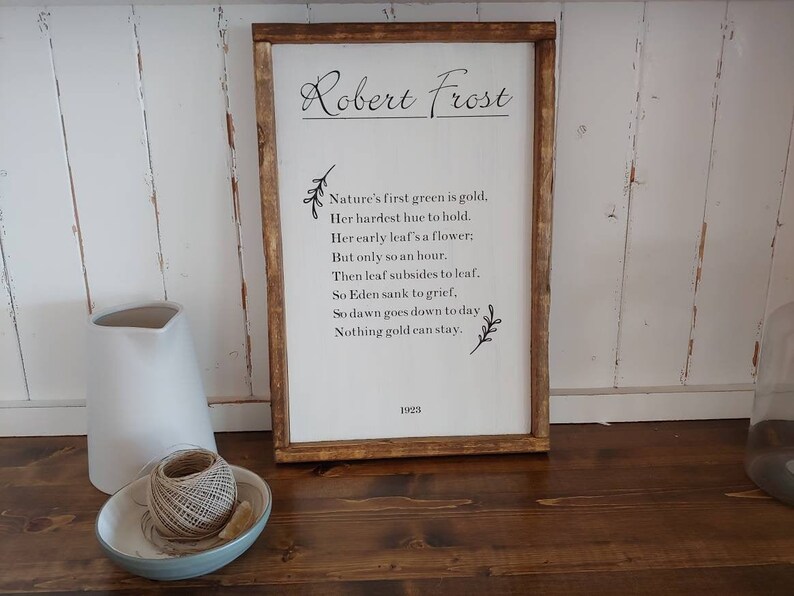 Robert Frost
Nature's first green is gold,
Her hardest hue to hold.
Her early leaf's a flower;
But only so an hour.
Then leaf subsides to leaf.
So Eden sank to grief,
So dawn goes down to day
Nothing gold can stay.
1923